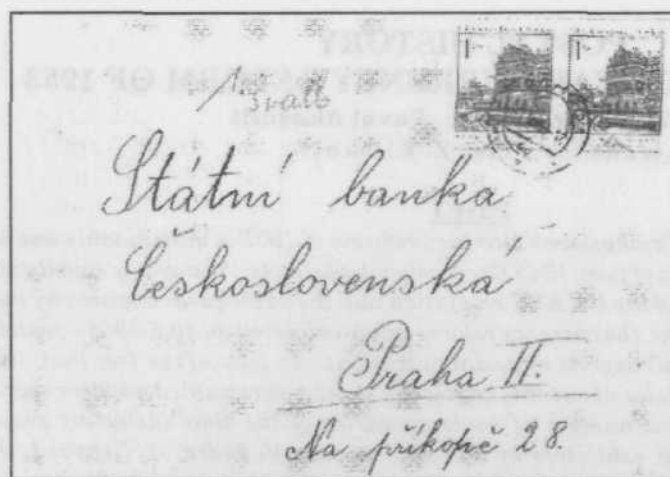 Státní banka
Československá
Praha II
Na příkopě 28.